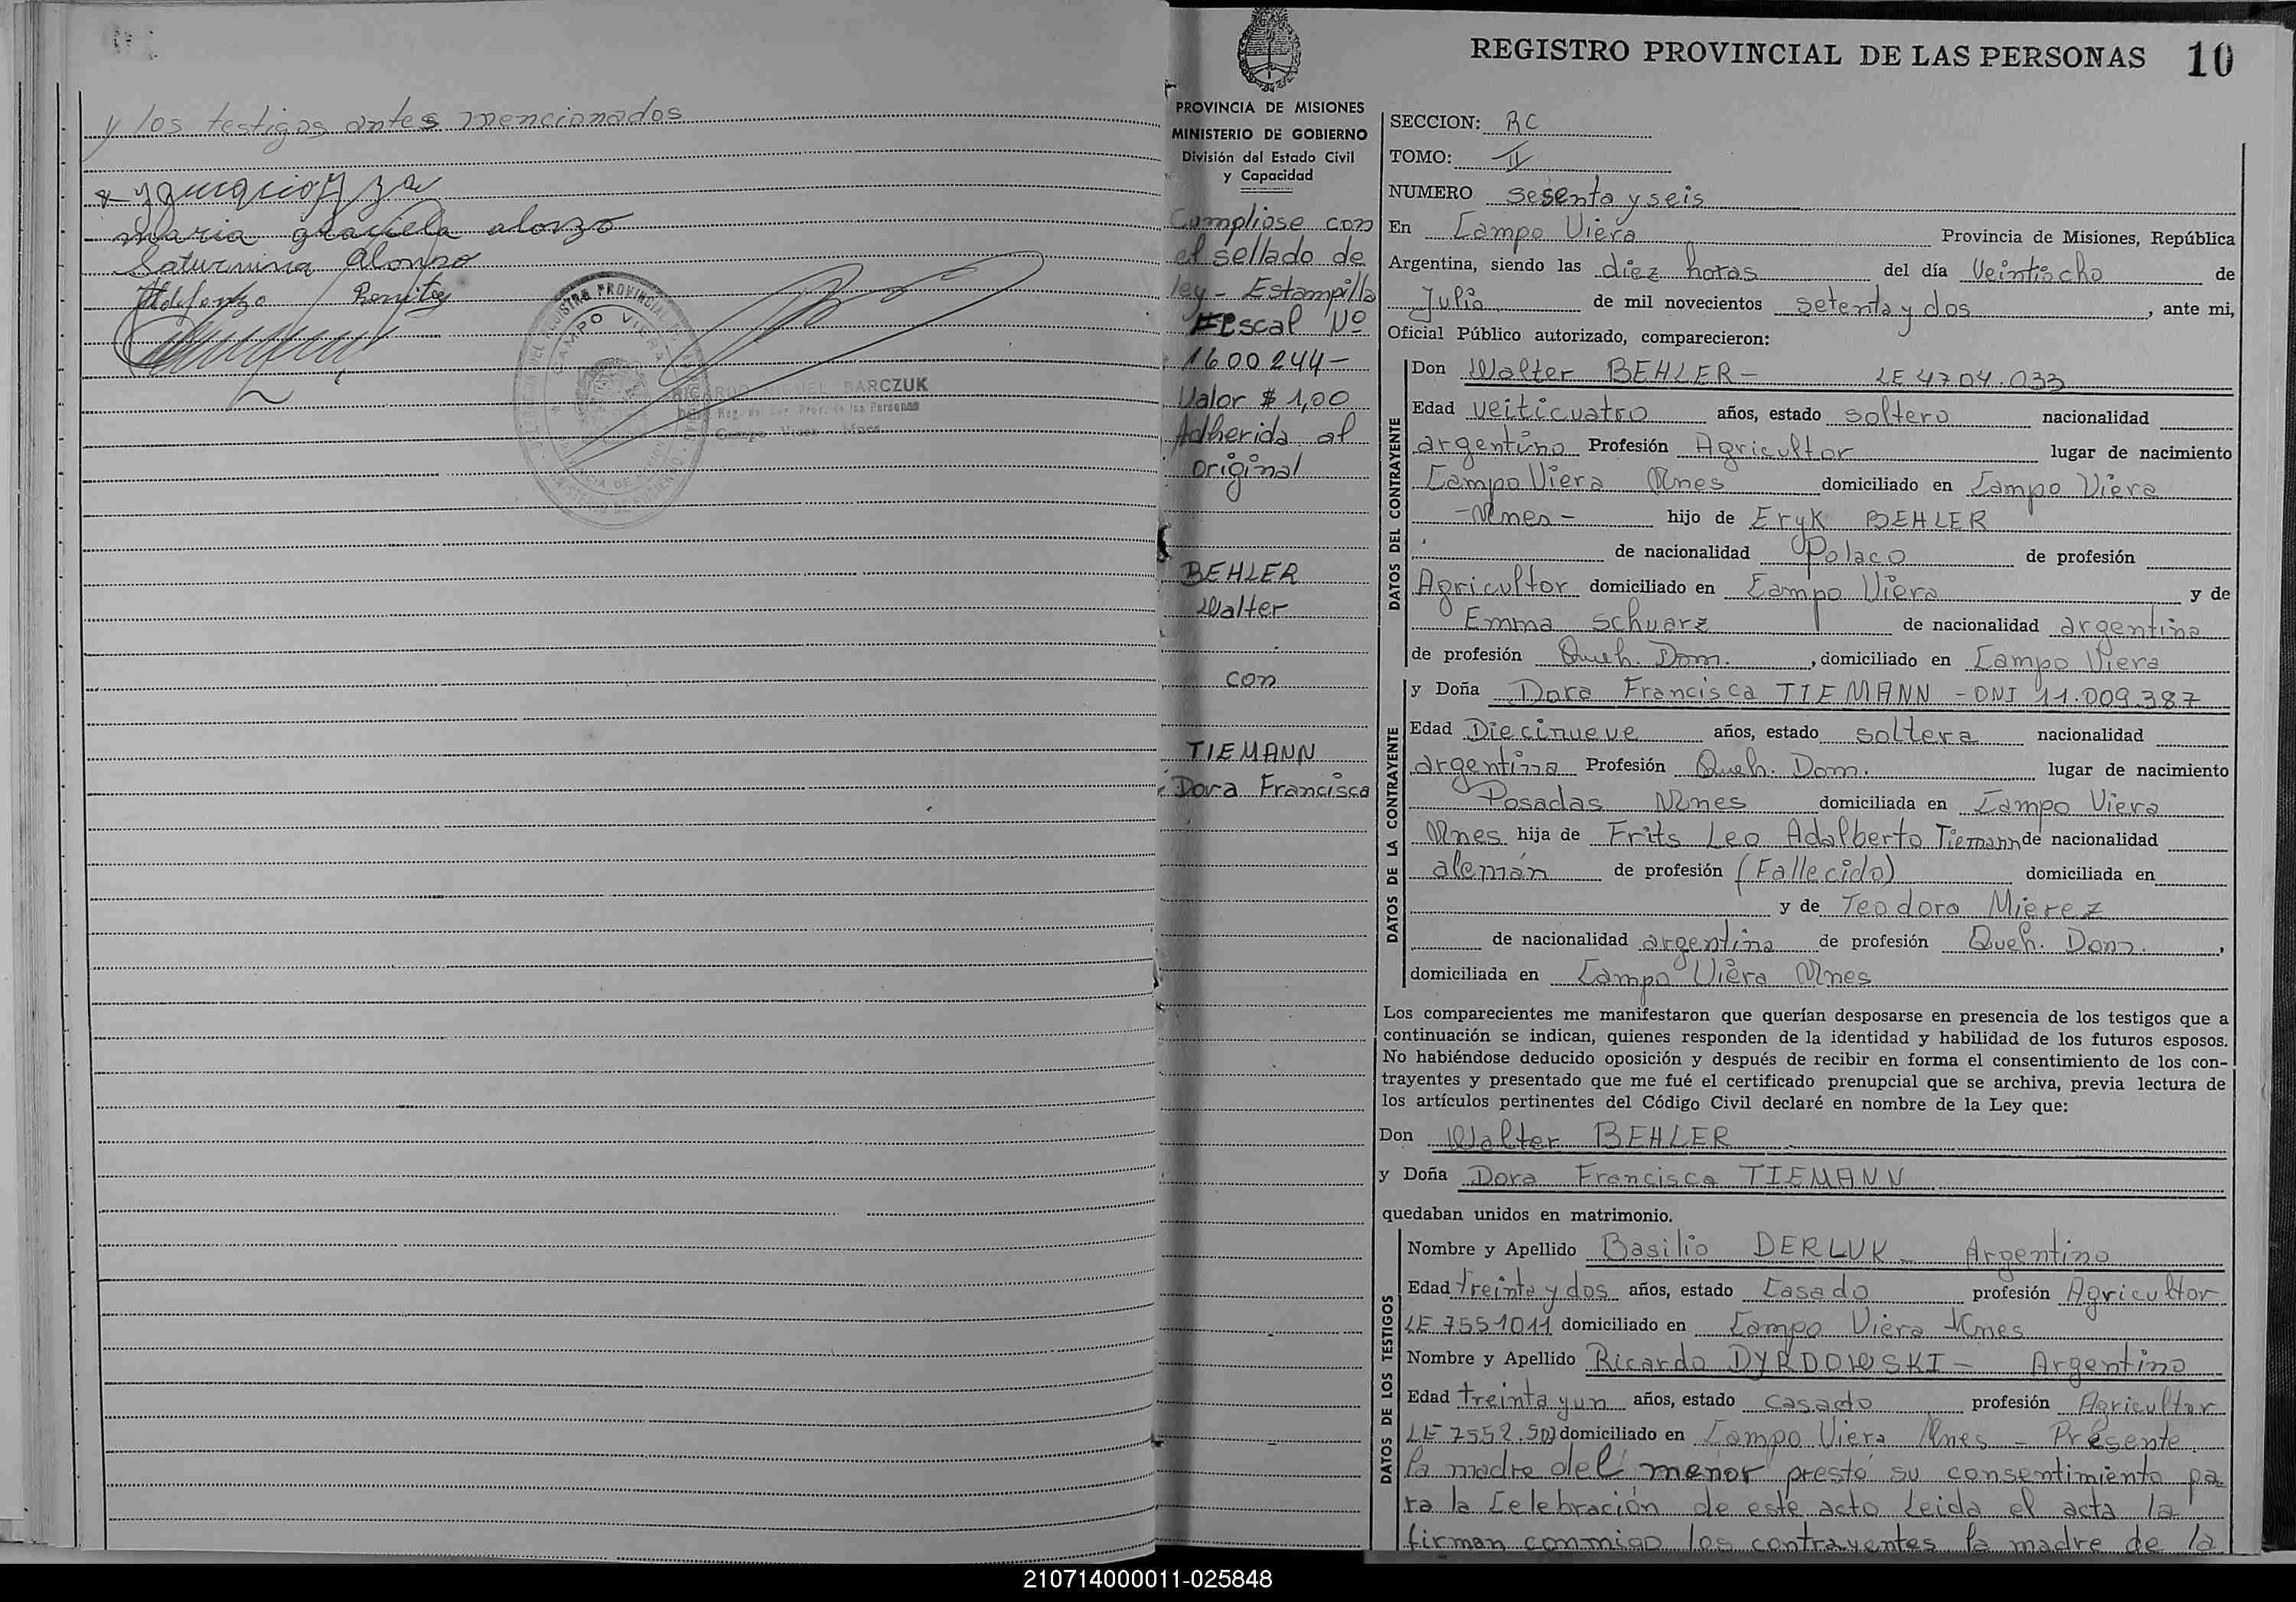 y los testigos antes mencionados
maria graciela alonzo
Saturnina Alonzo
Ildefonzo Benitez
CAMPO VIERA
RICARDO MIGUEL BARCZUK
Campo Viera - Mnes
REGISTRO PROVINCIAL DE LAS PERSONAS 10
PROVINCIA DE MISIONES
MINISTERIO DE GOBIERNO
División del Estado Civil
y Capacidad
Cumpliose con
el sellado de
ley - Estampilla
Fiscal Nº
1600244-
Valor $ 1,00
Adherida al
original
BEHLER
Walter
con
TIEMANN
Dora Francisca
SECCION: RC
TOMO: II
NUMERO sesenta y seis
En Campo Viera Provincia de Misiones, República
Argentina, siendo las diez horas del día Veintiocho de
Julio de mil novecientos setenta y dos, ante mi,
Oficial Público autorizado, comparecieron:
DATOS DEL CONTRAYENTE
Don Walter BEHLER - LE 4704.033
Edad veiticuatro años, estado soltero nacionalidad
argentino Profesión Agricultor lugar de nacimiento
Campo Viera Mnes domiciliado en Campo Viera
- Mnes - hijo de Eryk BEHLER
de nacionalidad Polaco de profesión
Agricultor domiciliado en Campo Viera y de
Emma Schuarz de nacionalidad argentina
de profesión Queh. Dom., domiciliado en Campo Viera
DATOS DE LA CONTRAYENTE
y Doña Dora Francisca TIEMANN - DNI 11.009.387
Edad Diecinueve años, estado soltera nacionalidad
argentina Profesión Queh. Dom. lugar de nacimiento
Posadas Mnes domiciliada en Campo Viera
Mnes hija de Frits Leo Adalberto Tiemann de nacionalidad
alemán de profesión (Fallecido) domiciliada en
y de Teodora Mierez
de nacionalidad argentina de profesión Queh. Dom.,
domiciliada en Campo Viera Mnes
Los comparecientes me manifestaron que querían desposarse en presencia de los testigos que a
continuación se indican, quienes responden de la identidad y habilidad de los futuros esposos.
No habiéndose deducido oposición y después de recibir en forma el consentimiento de los con-
trayentes y presentado que me fué el certificado prenupcial que se archiva, previa lectura de
los artículos pertinentes del Código Civil declaré en nombre de la Ley que:
Don Walter BEHLER
y Doña Dora Francisca TIEMANN
quedaban unidos en matrimonio.
DATOS DE LOS TESTIGOS
Nombre y Apellido Basilio DERLUK - Argentino
Edad treinta y dos años, estado Casado profesión Agricultor
LE 7551011 domiciliado en Campo Viera Mnes
Nombre y Apellido Ricardo DYRDOWSKI - Argentino
Edad treinta y un años, estado casado profesión Agricultor
LE domiciliado en Campo Viera Mnes - Presente
la madre del menor prestó su consentimiento pa
ra la Celebración de este acto Leida el acta la
firman conmigo los contrayentes la madre de la
210714000011-025848